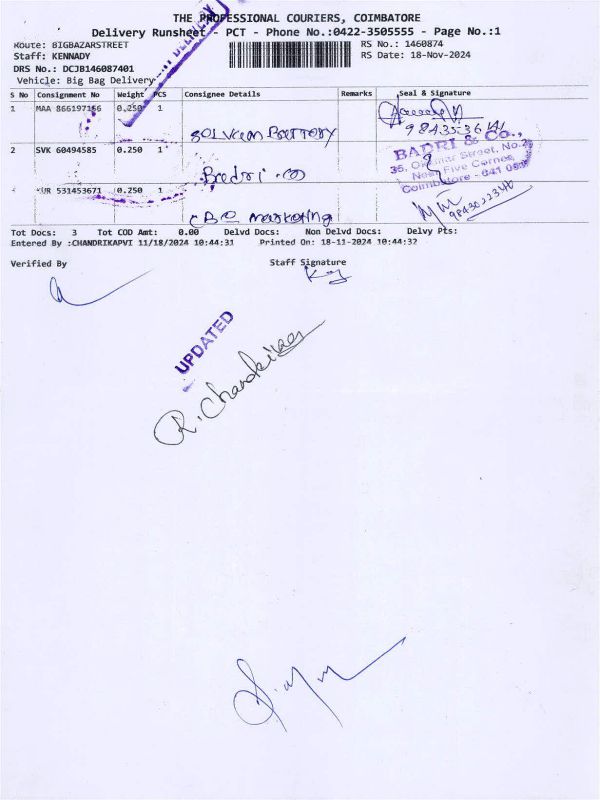 THE PROFESSIONAL COURIERS, COIMBATORE
Delivery Runsheet - PCT - Phone No.:0422-3505555 - Page No.:1
DELIVERY
Route: BIGBAZARSTREET
RS No.: 1460874
Staff: KENNADY
RS Date: 18-Nov-2024
DRS No.: DCJB146087401
Vehicle: Big Bag Delivery
S No Consignment No Weight PCS Consignee Details Remarks Seal & Signature
1 MAA 866197166 0.250 1
Battery
2 SVK 60494585 0.250 1
Badri .co
BADRI & Co.,
Coimbatore - 641
KUR 531453671 0.250 1
CBE marketing
Tot Docs: 3 Tot COD Amt: 0.00 Delvd Docs: Non Delvd Docs: Delvy Pts:
Entered By :CHANDRIKAPVI 11/18/2024 10:44:31 Printed On: 18-11-2024 10:44:32
Verified By Staff Signature
UPDATED
R. Chandrika